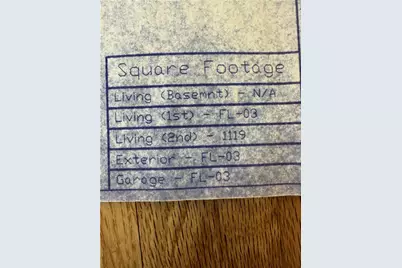 Square Footage
Living (Basemnt) - N/A
Living (1st) - FL-03
Living (2nd) - 1119
Exterior - FL-03
Garage - FL-03